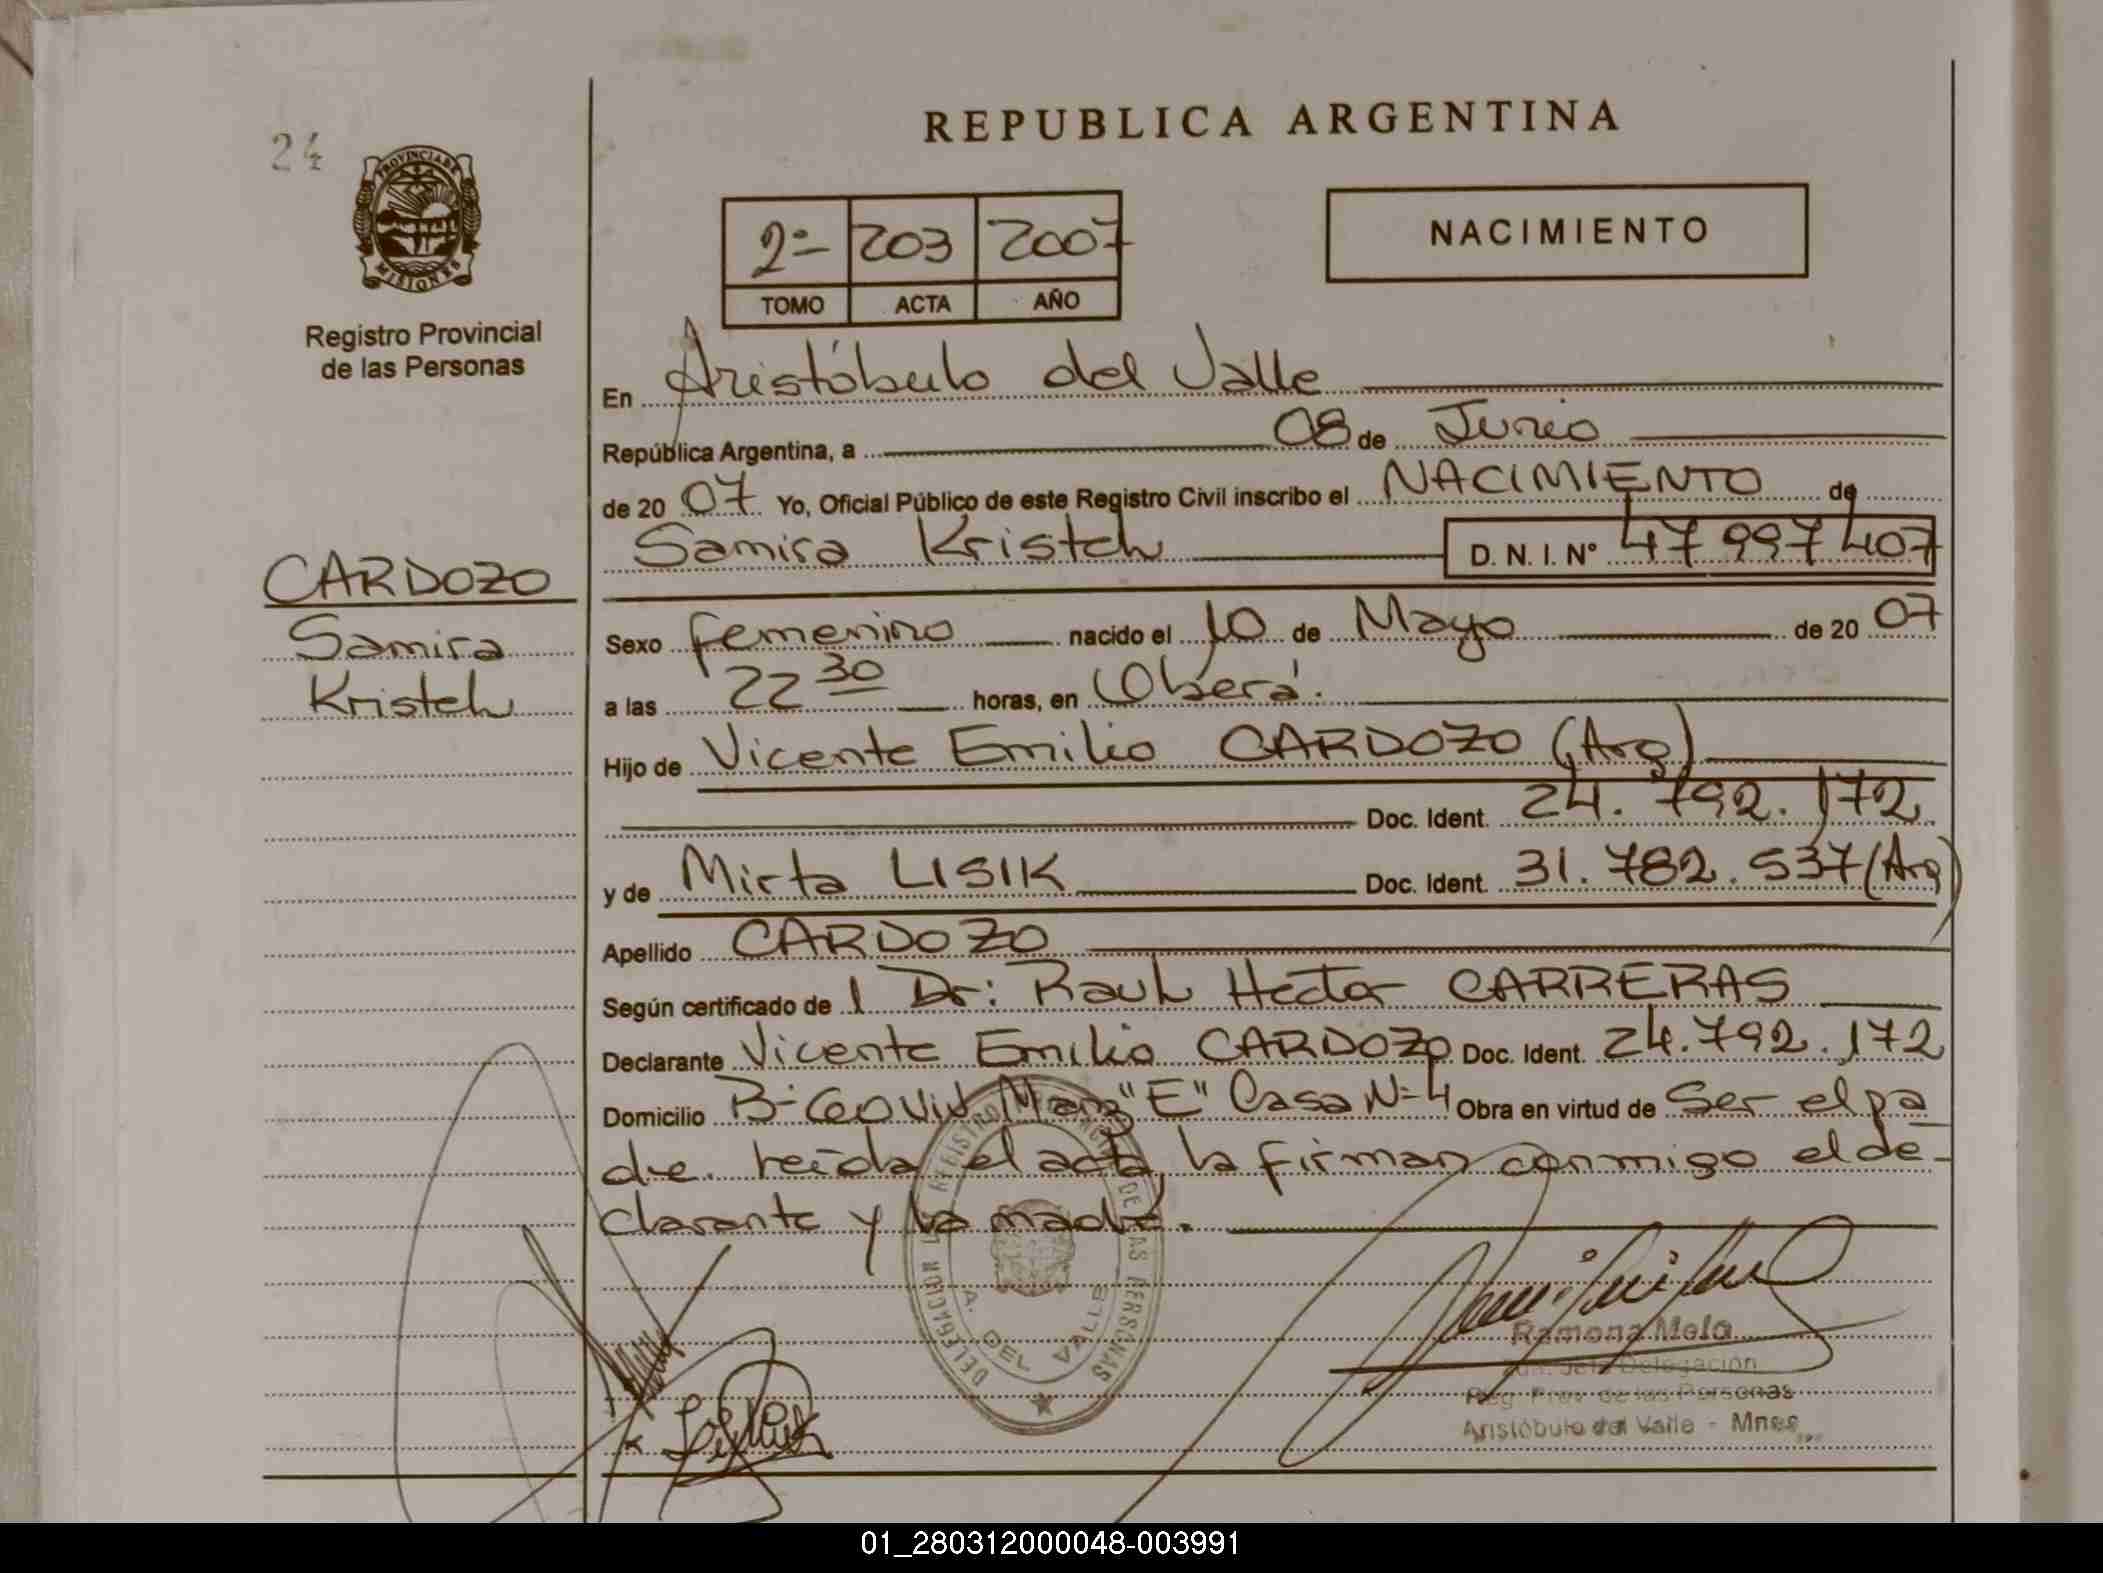 24
REPUBLICA ARGENTINA
PROVINCIA DE
MISIONES
Registro Provincial
de las Personas
2º 203 2007
TOMO ACTA AÑO
NACIMIENTO
En Aristóbulo del Valle
República Argentina, a 08 de Junio
de 2007 Yo, Oficial Público de este Registro Civil inscribo el NACIMIENTO de
Samira Kristel D. N. I. Nº 47997407
CARDOZO
Samira
Kristel
Sexo femenino nacido el 10 de Mayo de 2007
a las 22 30 horas, en Oberá.
Hijo de Vicente Emilio CARDOZO (Arg)
Doc. Ident. 24.792.172
y de Mirta LISIK Doc. Ident. 31.782.537 (Arg)
Apellido CARDOZO
Según certificado de l Dr: Raul Hector CARRERAS
Declarante Vicente Emilio CARDOZO Doc. Ident. 24.792.172
Domicilio Bº Manz "E" Casa Nº 4 Obra en virtud de Ser el pa
dre. leida el acta, la firman conmigo el de-
clarante y la madre.
REGISTRO PROVINCIAL DE LAS PERSONAS
DELEGACION
A. DEL VALLE
Ramona Melo
Jefa Delegación
Reg. Prov. de las Personas
Aristóbulo del Valle - Mnes.
01_280312000048-003991